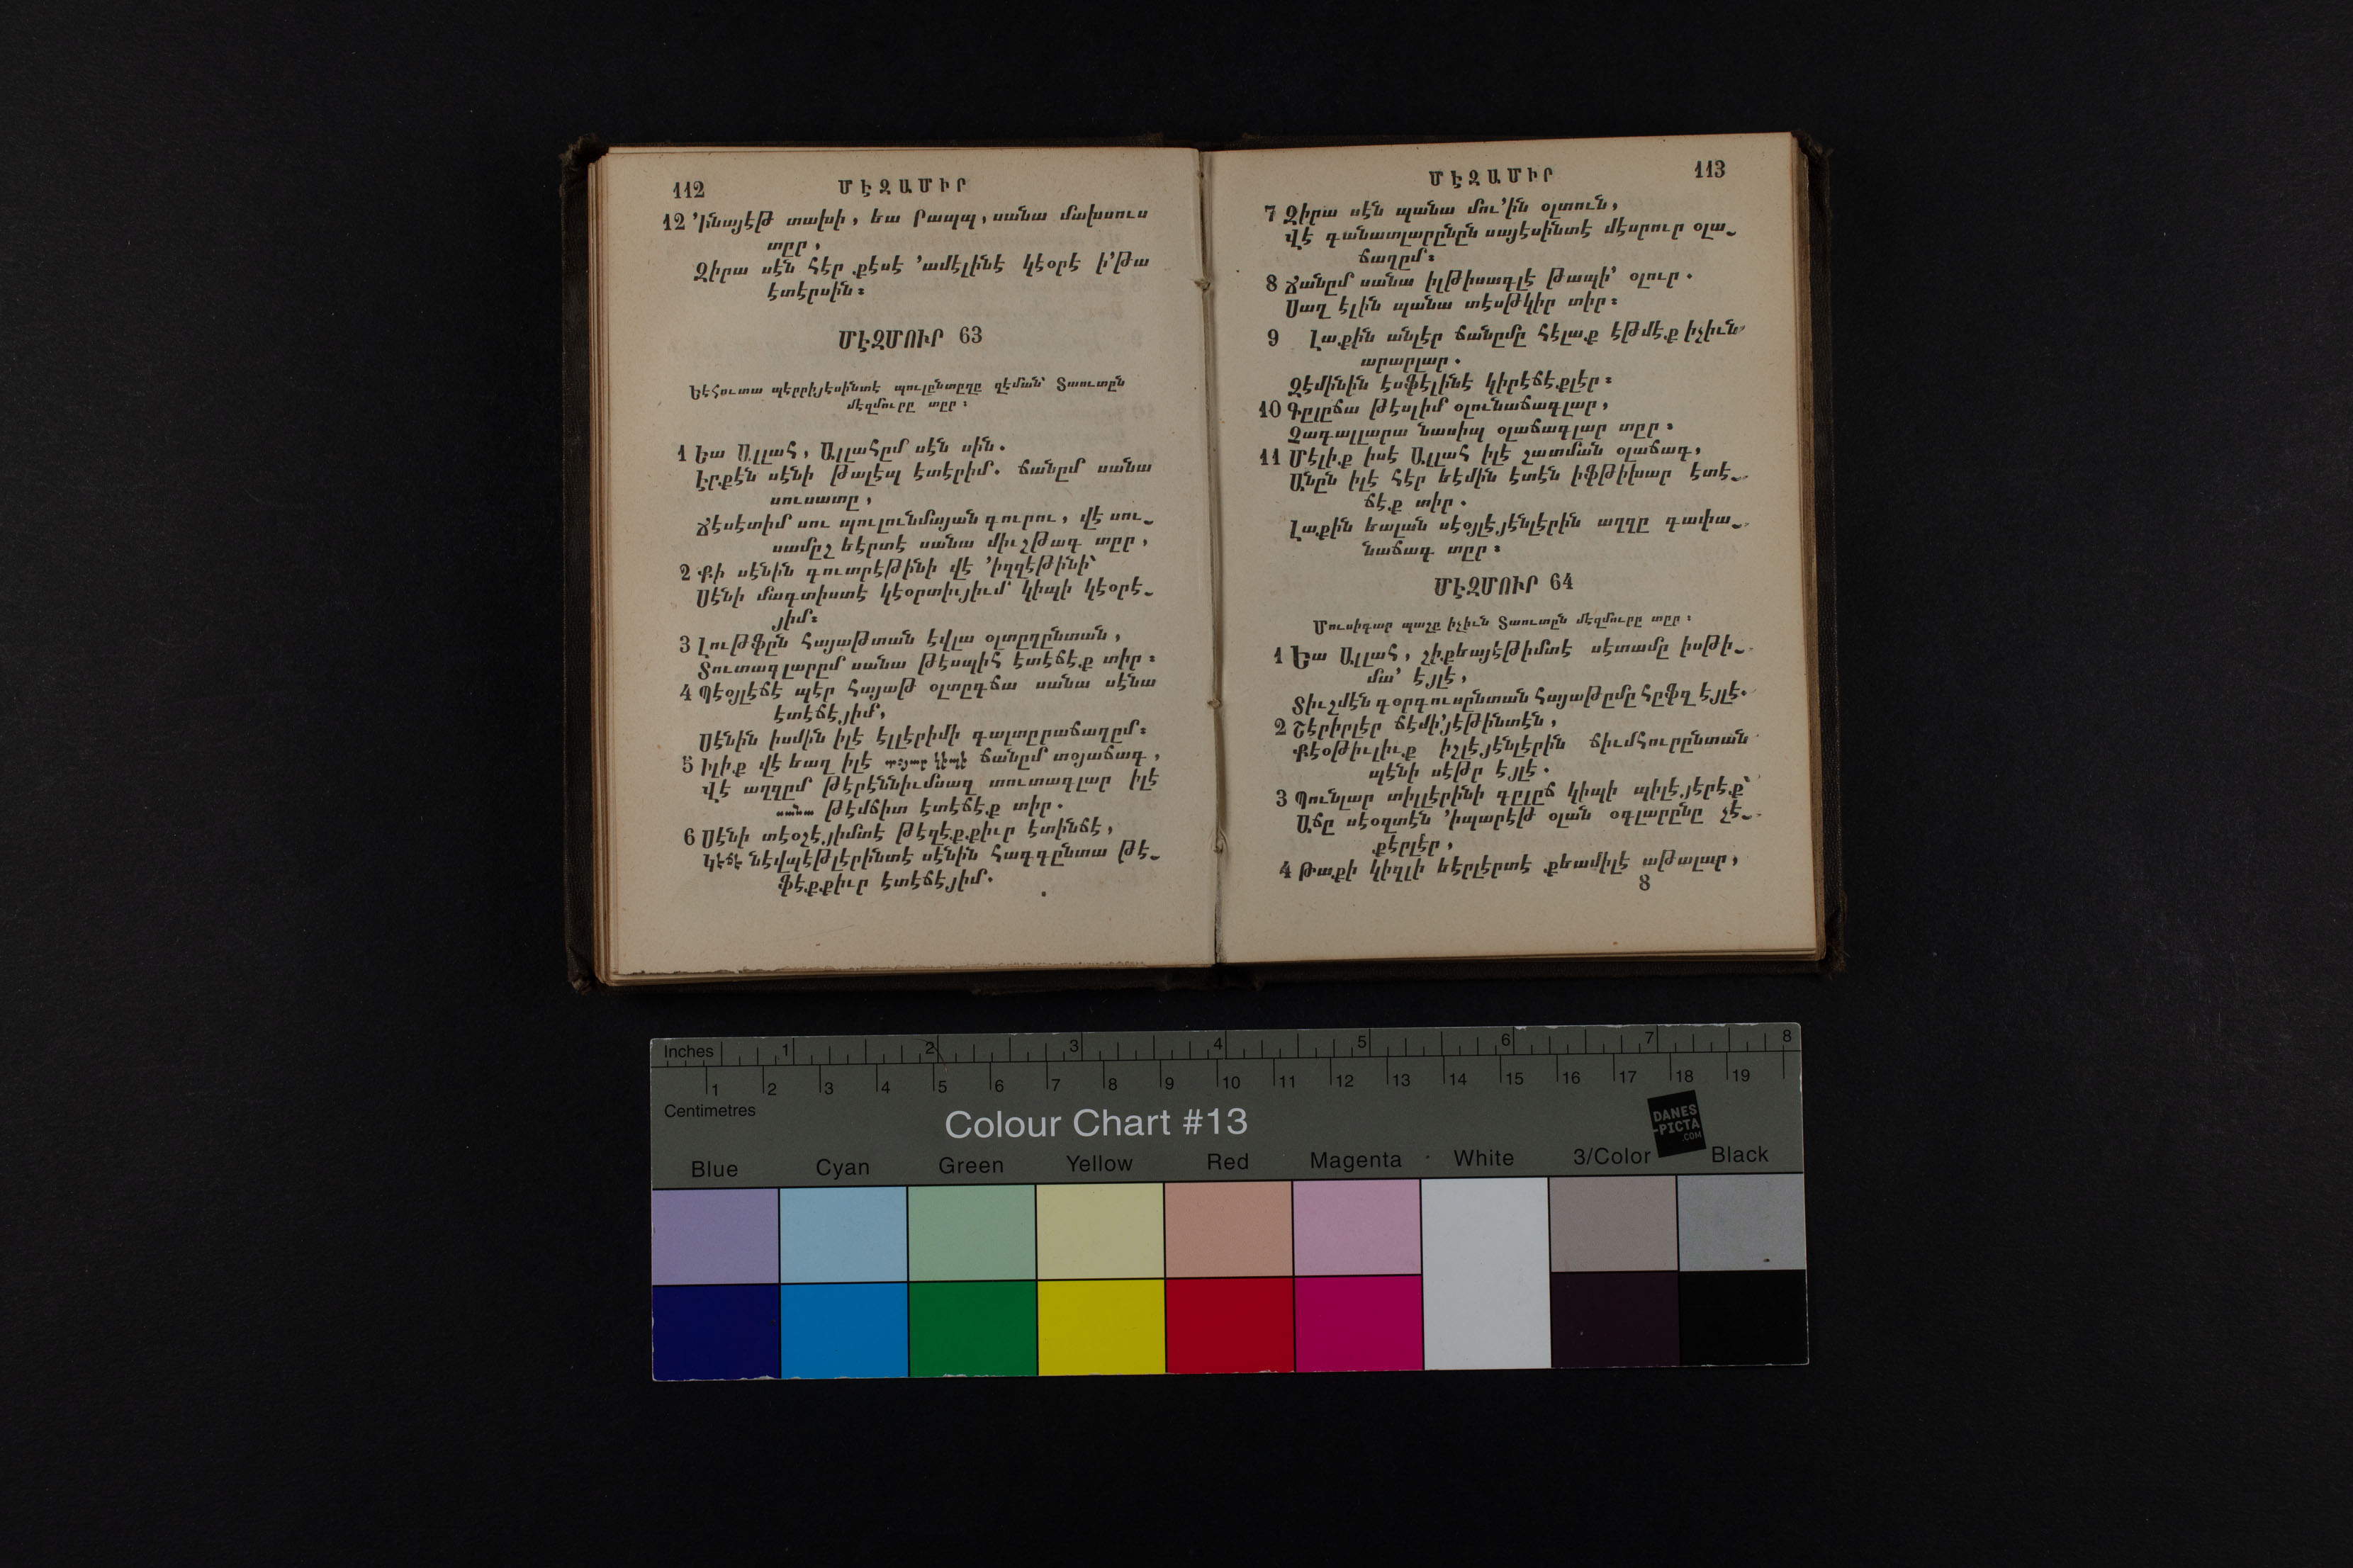 112
ՄԷԶԱՄԻՐ
12 ՚Ինայէթ տախի, եա Րապպ, սանա մախսուս
տըր,
Զիրա սէն հէր քէսէ ՚ամէլինէ կէօրէ ի՚թա
էտէրսին։
ՄԷԶՄՈՒՐ 63
Եէհուտա պէրրիյէսինտէ պուլընտըղը զէման՝ Տաուտըն
մէզմուրը տըր։
1 Եա Ալլահ, Ալլահըմ սէն սին.
Էրքէն սէնի թալէպ էտէրիմ. ճանըմ սանա
սուսատը,
Ճէսէտիմ սու պուլունմայան գուրու, վէ սու֊
սամըշ եէրտէ սանա միւշթագ տըր,
2 Քի սէնին գուտրէթինի վէ ՚իզզէթինի՝
Սէնի մագտիստէ կէօրտիւյիւմ կիպի կէօրէ֊
յիմ։
3 Լութֆըն հայաթտան էվլա օլտըղընտան,
Տուտագլարըմ սանա թէսպիհ էտէճէք տիր։
4 Պէօյլէճէ պէր հայաթ օլտըգճա սանա սէնա
էտէճէյիմ,
Սէնին իսմին իլէ էլլէրիմի գալտըրաճաղըմ։
5 Իլիք վէ եաղ իլէ տօյար կիպի ճանըմ տօյաճագ,
Վէ աղզըմ թէրէննիւմսազ տուտագլար իլէ
սանա թէմճիտ էտէճէք տիր.
6 Սէնի տէօշէյիմտէ թէզէքքիւր էտինճէ,
Կէճէ նէվպէթլէրինտէ սէնին հագգընտա թէ֊
ֆէքքիւր էտէճէյիմ.
ՄԷԶԱՄԻՐ
113
7 Զիրա սէն պանա մու՚ին օլտուն,
Վէ գանատլարընըն սայէսինտէ մէսրուր օլա֊
ճաղըմ։
8 Ճանըմ սանա իլթիսագլէ թապի՚ օլուր.
Սաղ էլին պանա տէսթկիր տիր։
9 Լաքին անլէր ճանըմը հէլաք էթմէք իչիւն
արարլար.
Զէմինին էսֆէլինէ կիրէճէքլէր։
10 Գըլըճա թէսլիմ օլունաճագլար,
Չագալլարա նասիպ օլաճագլար տըր։
11 Մէլիք իսէ Ալլահ իլէ շատման օլաճագ,
Անըն իլէ հէր եէմին էտէն իֆթիխար էտէ֊
ճէք տիր.
Լաքին եալան սէօյլէյէնլէրին աղզը գափա֊
նաճագ տըր։
ՄԷԶՄՈՒՐ 64
Մուսիգար պաշը իչիւն Տաուտըն մէզմուրը տըր։
1 Եա Ալլահ, շիքեայէթիմտէ սէտամը իսթի֊
մա՚ էյլէ,
Տիւշմէն գօրգուսընտան հայաթըմը հըֆզ էյլէ.
2 Շէրիրլէր ճէմի՚յէթինտէն,
Քէօթիւլիւք իշլէյէնլէրին ճիւմհուրընտան
պէնի սէթր էյլէ.
3 Պունլար տիլլէրինի գըլըճ կիպի պիլէյէրէք՝
Աճը սէօզտէն ՚իպարէթ օլան օգլարընը չէ֊
քէրլէր,
4 Թաքի կիզլի եէրլէրտէ քեամիլէ աթալար,
8
Inches 1 2 3 4 5 6 7 8
1 2 3 4 5 6 7 8 9 10 11 12 13 14 15 16 17 18 19
Centimetres
Colour Chart #13
DANES
-PICTA
.COM
Blue Cyan Green Yellow Red Magenta White 3/Color Black